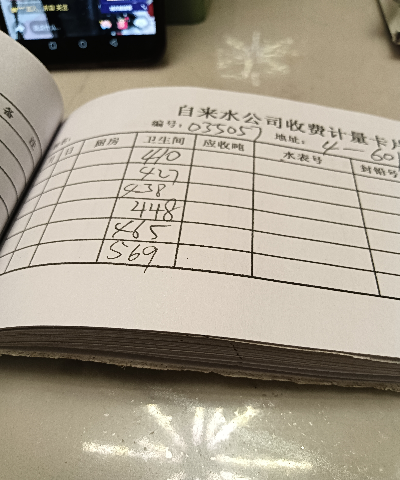 自来水公司收费计量卡
编号: 035057 地址: 4-601
月 日 厨房 卫生间 应收略 水表号 封铅号
410
427
438
448
465
569